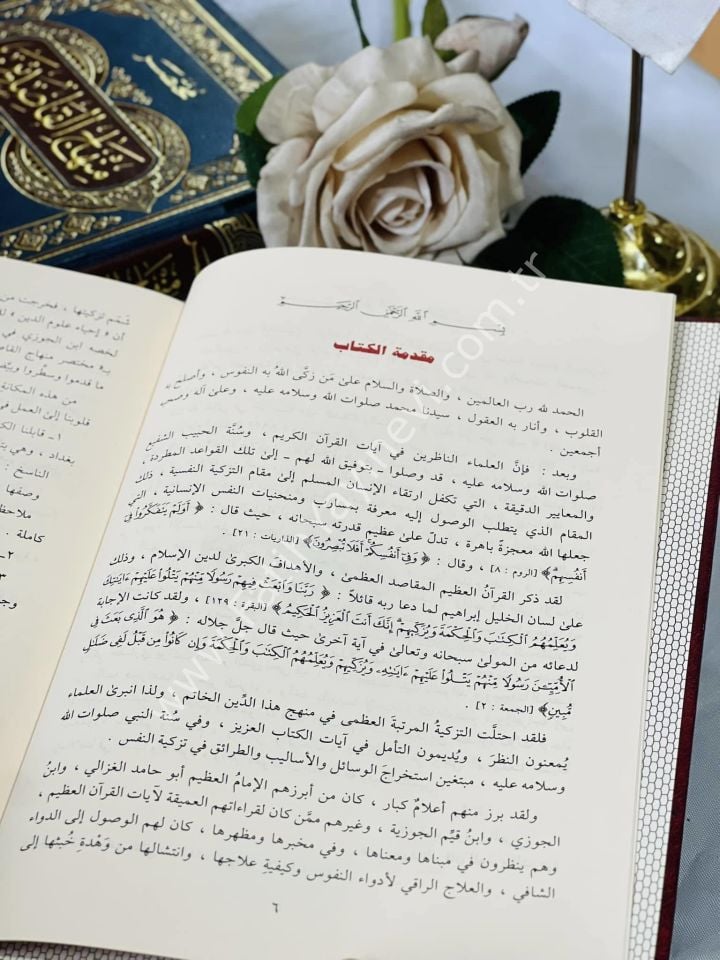 مختصر
منهاج القاصدين
بسم الله الرحمن الرحيم
مقدمة الكتاب
الحمد لله رب العالمين ، والصلاة والسلام علىٰ مَن زكَّى اللهُ به النفوس ، وأصلح به
القلوب ، وأنار به العقول ، سيدنا محمد صلوات الله وسلامه عليه ، وعلىٰ آله وصحبه
أجمعين .
وبعد : فإنَّ العلماء الناظرين في آيات القرآن الكريم ، وسُنَّة الحبيب الشفيع
صلوات الله وسلامه عليه ، قد وصلوا ـ بتوفيق الله لهم ـ إلىٰ تلك القواعد المطردة ،
والمعايير الدقيقة ، التي تكفل ارتقاء الإنسان المسلم إلىٰ مقام التزكية النفسية ، ذلك
المقام الذي يتطلب الوصول إليه معرفة بمسارب ومنحنيات النفس الإنسانية ، التي
جعلها الله معجزةً باهرة ، تدلّ علىٰ عظيم قدرته سبحانه ، حيث قال : ﴿ أَوَلَمْ يَتَفَكَّرُوا۟ فِىٓ
أَنفُسِهِم﴾ [الروم : ٨] ، وقال : ﴿ وَفِىٓ أَنفُسِكُمْ أَفَلَا تُبْصِرُونَ﴾ [الذاريات : ٢١] .
لقد ذكر القرآنُ العظيم المقاصد العظمىٰ ، والأهداف الكبرىٰ لدين الإسلام ، وذلك
علىٰ لسان الخليل إبراهيم لما دعا ربه قائلاً : ﴿ رَبَّنَا وَٱبْعَثْ فِيهِمْ رَسُولًا مِّنْهُمْ يَتْلُوا۟ عَلَيْهِمْ ءَايَٰتِكَ
وَيُعَلِّمُهُمُ ٱلْكِتَٰبَ وَٱلْحِكْمَةَ وَيُزَكِّيهِمْ إِنَّكَ أَنتَ ٱلْعَزِيزُ ٱلْحَكِيمُ﴾ [البقرة : ١٢٩] ، ولقد كانت الإجابة
لدعائه من المولىٰ سبحانه وتعالىٰ في آية أخرىٰ حيث قال جلَّ جلاله : ﴿ هُوَ ٱلَّذِى بَعَثَ فِى
ٱلْأُمِّيِّـۧنَ رَسُولًا مِّنْهُمْ يَتْلُوا۟ عَلَيْهِمْ ءَايَٰتِهِۦ وَيُزَكِّيهِمْ وَيُعَلِّمُهُمُ ٱلْكِتَٰبَ وَٱلْحِكْمَةَ وَإِن كَانُوا۟ مِن قَبْلُ لَفِى ضَلَٰلٍ
مُّبِينٍ﴾ [الجمعة : ٢] .
فلقد احتلَّت التزكيةُ المرتبةَ العظمى في منهج هذا الدِّين الخاتم ، ولذا انبرىٰ العلماء
يُمعنون النظرَ ، ويُديمون التأمل في آيات الكتاب العزيز ، وفي سُنة النبي صلوات الله
وسلامه عليه ، مبتغين استخراجَ الوسائل والأساليب والطرائق في تزكية النفس .
ولقد برز منهم أعلامٌ كبار ، كان من أبرزهم الإمامُ العظيم أبو حامد الغزالي ، وابنُ
الجوزي ، وابنُ قيِّم الجوزية ، وغيرهم ممَّن كان لقراءاتهم العميقة لآيات القرآن العظيم ،
وهم ينظرون في مبناها ومعناها ، وفي مخبرها ومظهرها ، كان لهم الوصول إلى الدواء
الشافي ، والعلاج الراقي لأدواء النفوس وكيفيةِ علاجها ، وانتشالها من وَهْدةِ خُبثها إلى
٦
شمّم تزكيتها ، فخرجت من
أن « إحياء علوم الدين »
لخصه ابن الجوزي في
به مختصر منهاج القا
ما قدموا وسطَّروا
من هذه المكانة
قلوبنا إلى العمل في
١ـ قابلنا
بغداد ، وهي
الناسخ :
وصفها
ملاحظ
كاملة .
٢ـ
٣
وج